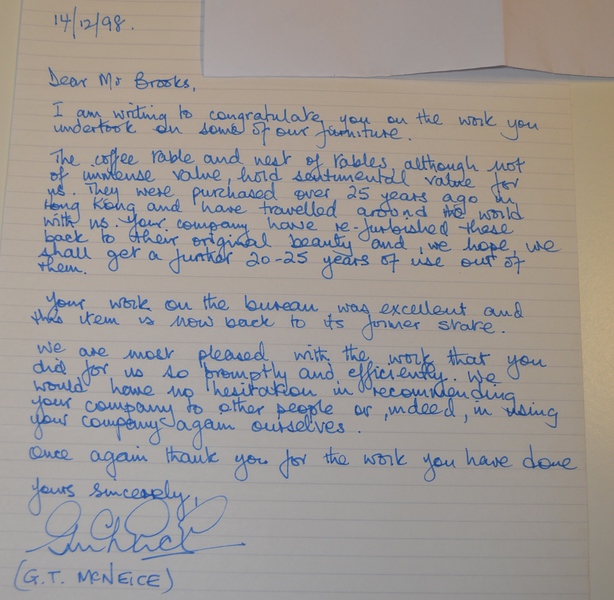 14/12/98.
Dear Mr Brooks,
I am writing to congratulate you on the work you
undertook on some of our furniture.
The coffee table and nest of tables, although not
of immense value, hold sentimental value for
us. They were purchased over 25 years ago in
Hong Kong and have travelled around the world
with us. Your company have re-furbished these
back to their original beauty and, we hope, we
shall get a further 20-25 years of use out of
them.
Your work on the bureau was excellent and
this item is now back to its former state.
We are most pleased with the work that you
did for us so promptly and efficiently. We
would have no hesitation in recommending
your company to other people or, indeed, in using
your company again ourselves.
Once again thank you for the work you have done
Yours sincerely,
(G.T. MCNEICE)